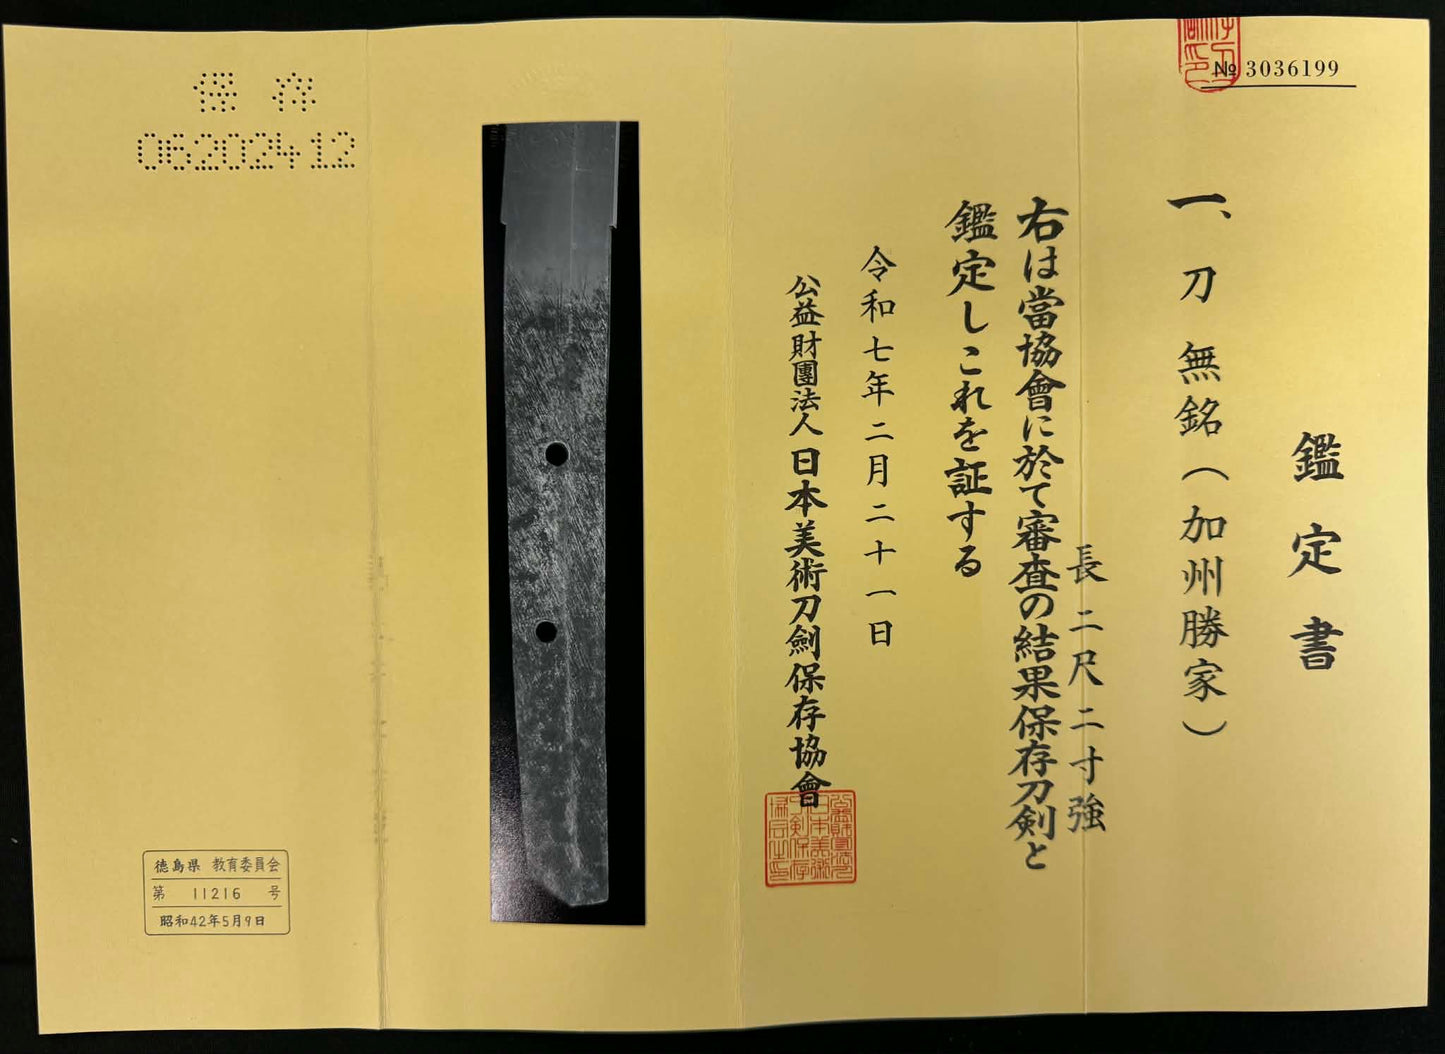 № 3036199
鑑定書
一、刀 無銘(加州勝家)
長 二尺二寸強
右は當協會に於て審査の結果保存刀剣と
鑑定しこれを証する
令和七年二月二十一日
公益財團法人 日本美術刀劍保存協會
保存
06202412
徳島県 教育委員会
第 11216 号
昭和42年5月9日